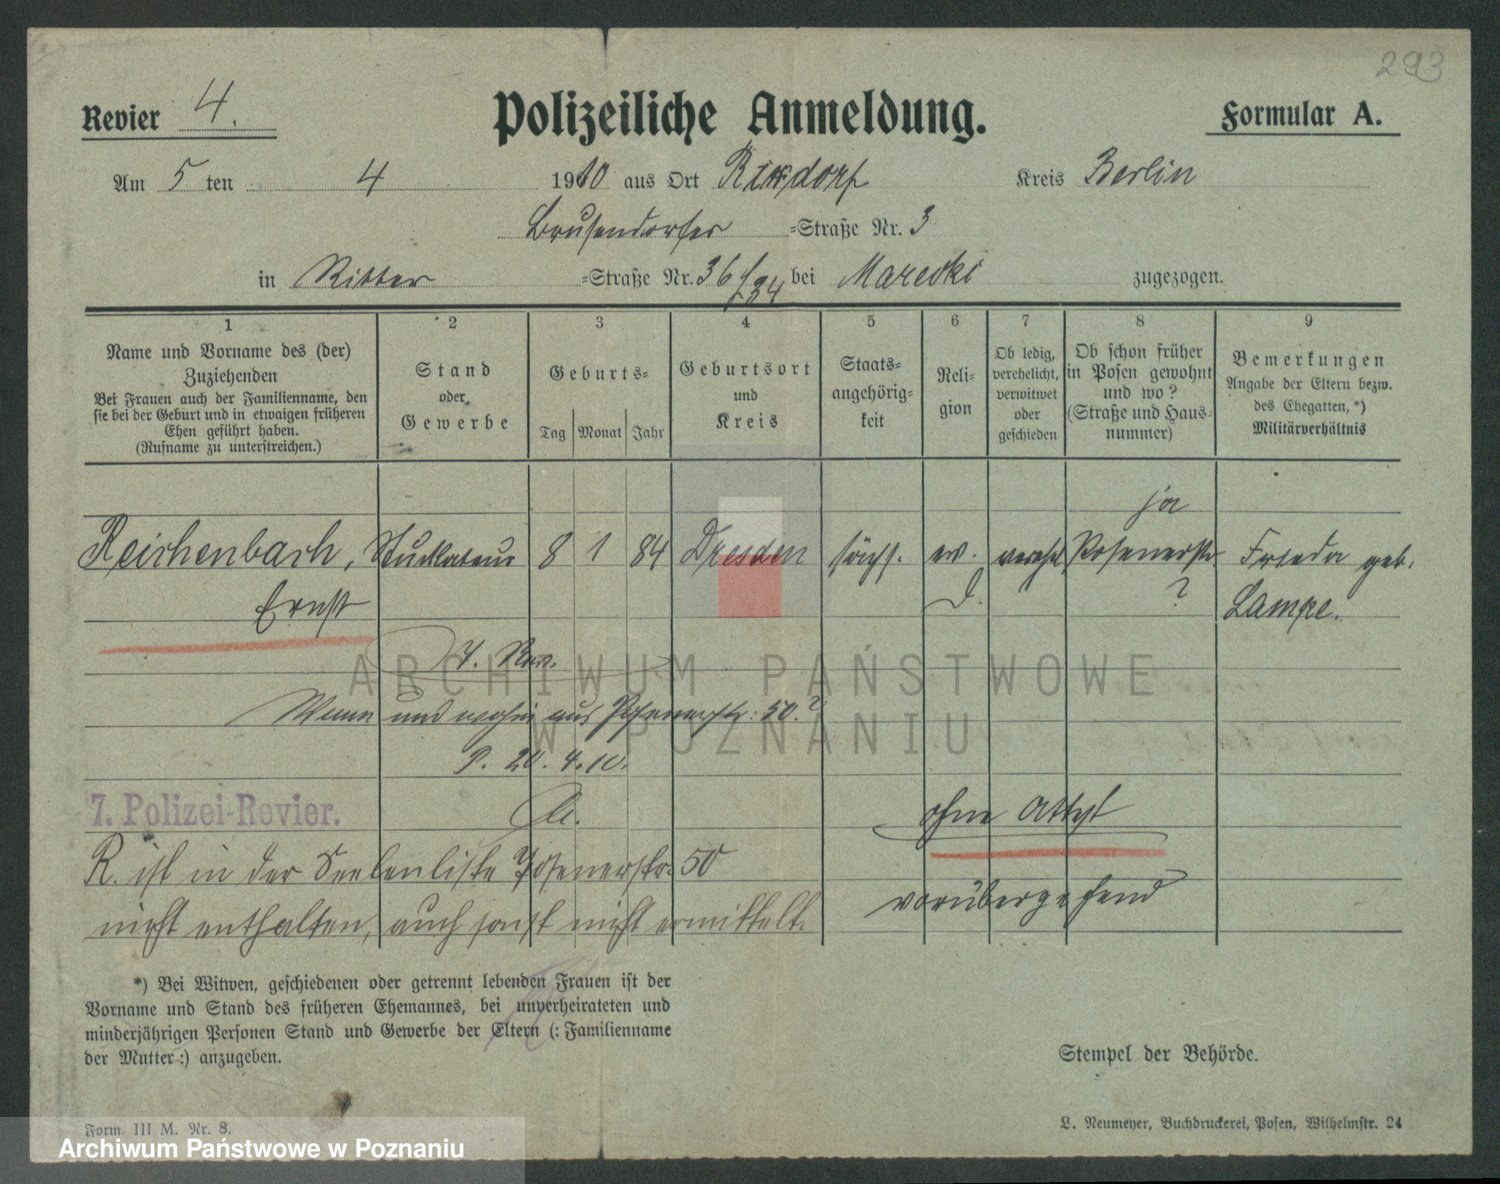 293
Revier 4.
Polizeiliche Anmeldung.
Formular A.
Am 5 ten 4 1910 aus Ort Rixdorf Kreis Berlin
Brusendorfer =Straße Nr. 3
in Ritter =Straße Nr. 36 bei Marecki zugezogen.
1 2 3 4 5 6 7 8 9
Name und Vorname des (der)
Zuziehenden
Bei Frauen auch der Familienname, den
sie bei der Geburt und in etwaigen früheren
Ehen geführt haben.
(Rufname zu unterstreichen.)
Stand
oder
Gewerbe
Geburts=
Tag Monat Jahr
Geburtsort
und
Kreis
Staats-
angehörig-
keit
Reli-
gion
Ob ledig,
verehelicht,
verwitwet
oder
geschieden
Ob schon früher
in Posen gewohnt
und wo?
(Straße und Haus-
nummer)
Bemerkungen
Angabe der Eltern bezw.
des Ehegatten,*)
Militärverhältnis
ja
Reichenbach, Stuckateur 8 1 84 Dresden sächs. ev. Posenerstr. Frieda geb.
Ernst ? Lampe.
7. Rev.
Wann und wohin aus Posenerstr: 50.?
P. 20.4.10.
7. Polizei-Revier.
ohne Attest
R. ist in der Seelenliste Posenerstr. 50
vorübergehend
nicht enthalten, auch sonst nicht ermittelt.
*) Bei Witwen, geschiedenen oder getrennt lebenden Frauen ist der
Vorname und Stand des früheren Ehemannes, bei unverheirateten und
minderjährigen Personen Stand und Gewerbe der Eltern (: Familienname
der Mutter :) anzugeben.
Stempel der Behörde.
Form. III M. Nr. 8.
L. Neumeyer, Buchdruckerei, Posen, Wilhelmstr. 24
ARCHIWUM PAŃSTWOWE
W POZNANIU
Archiwum Państwowe w Poznaniu